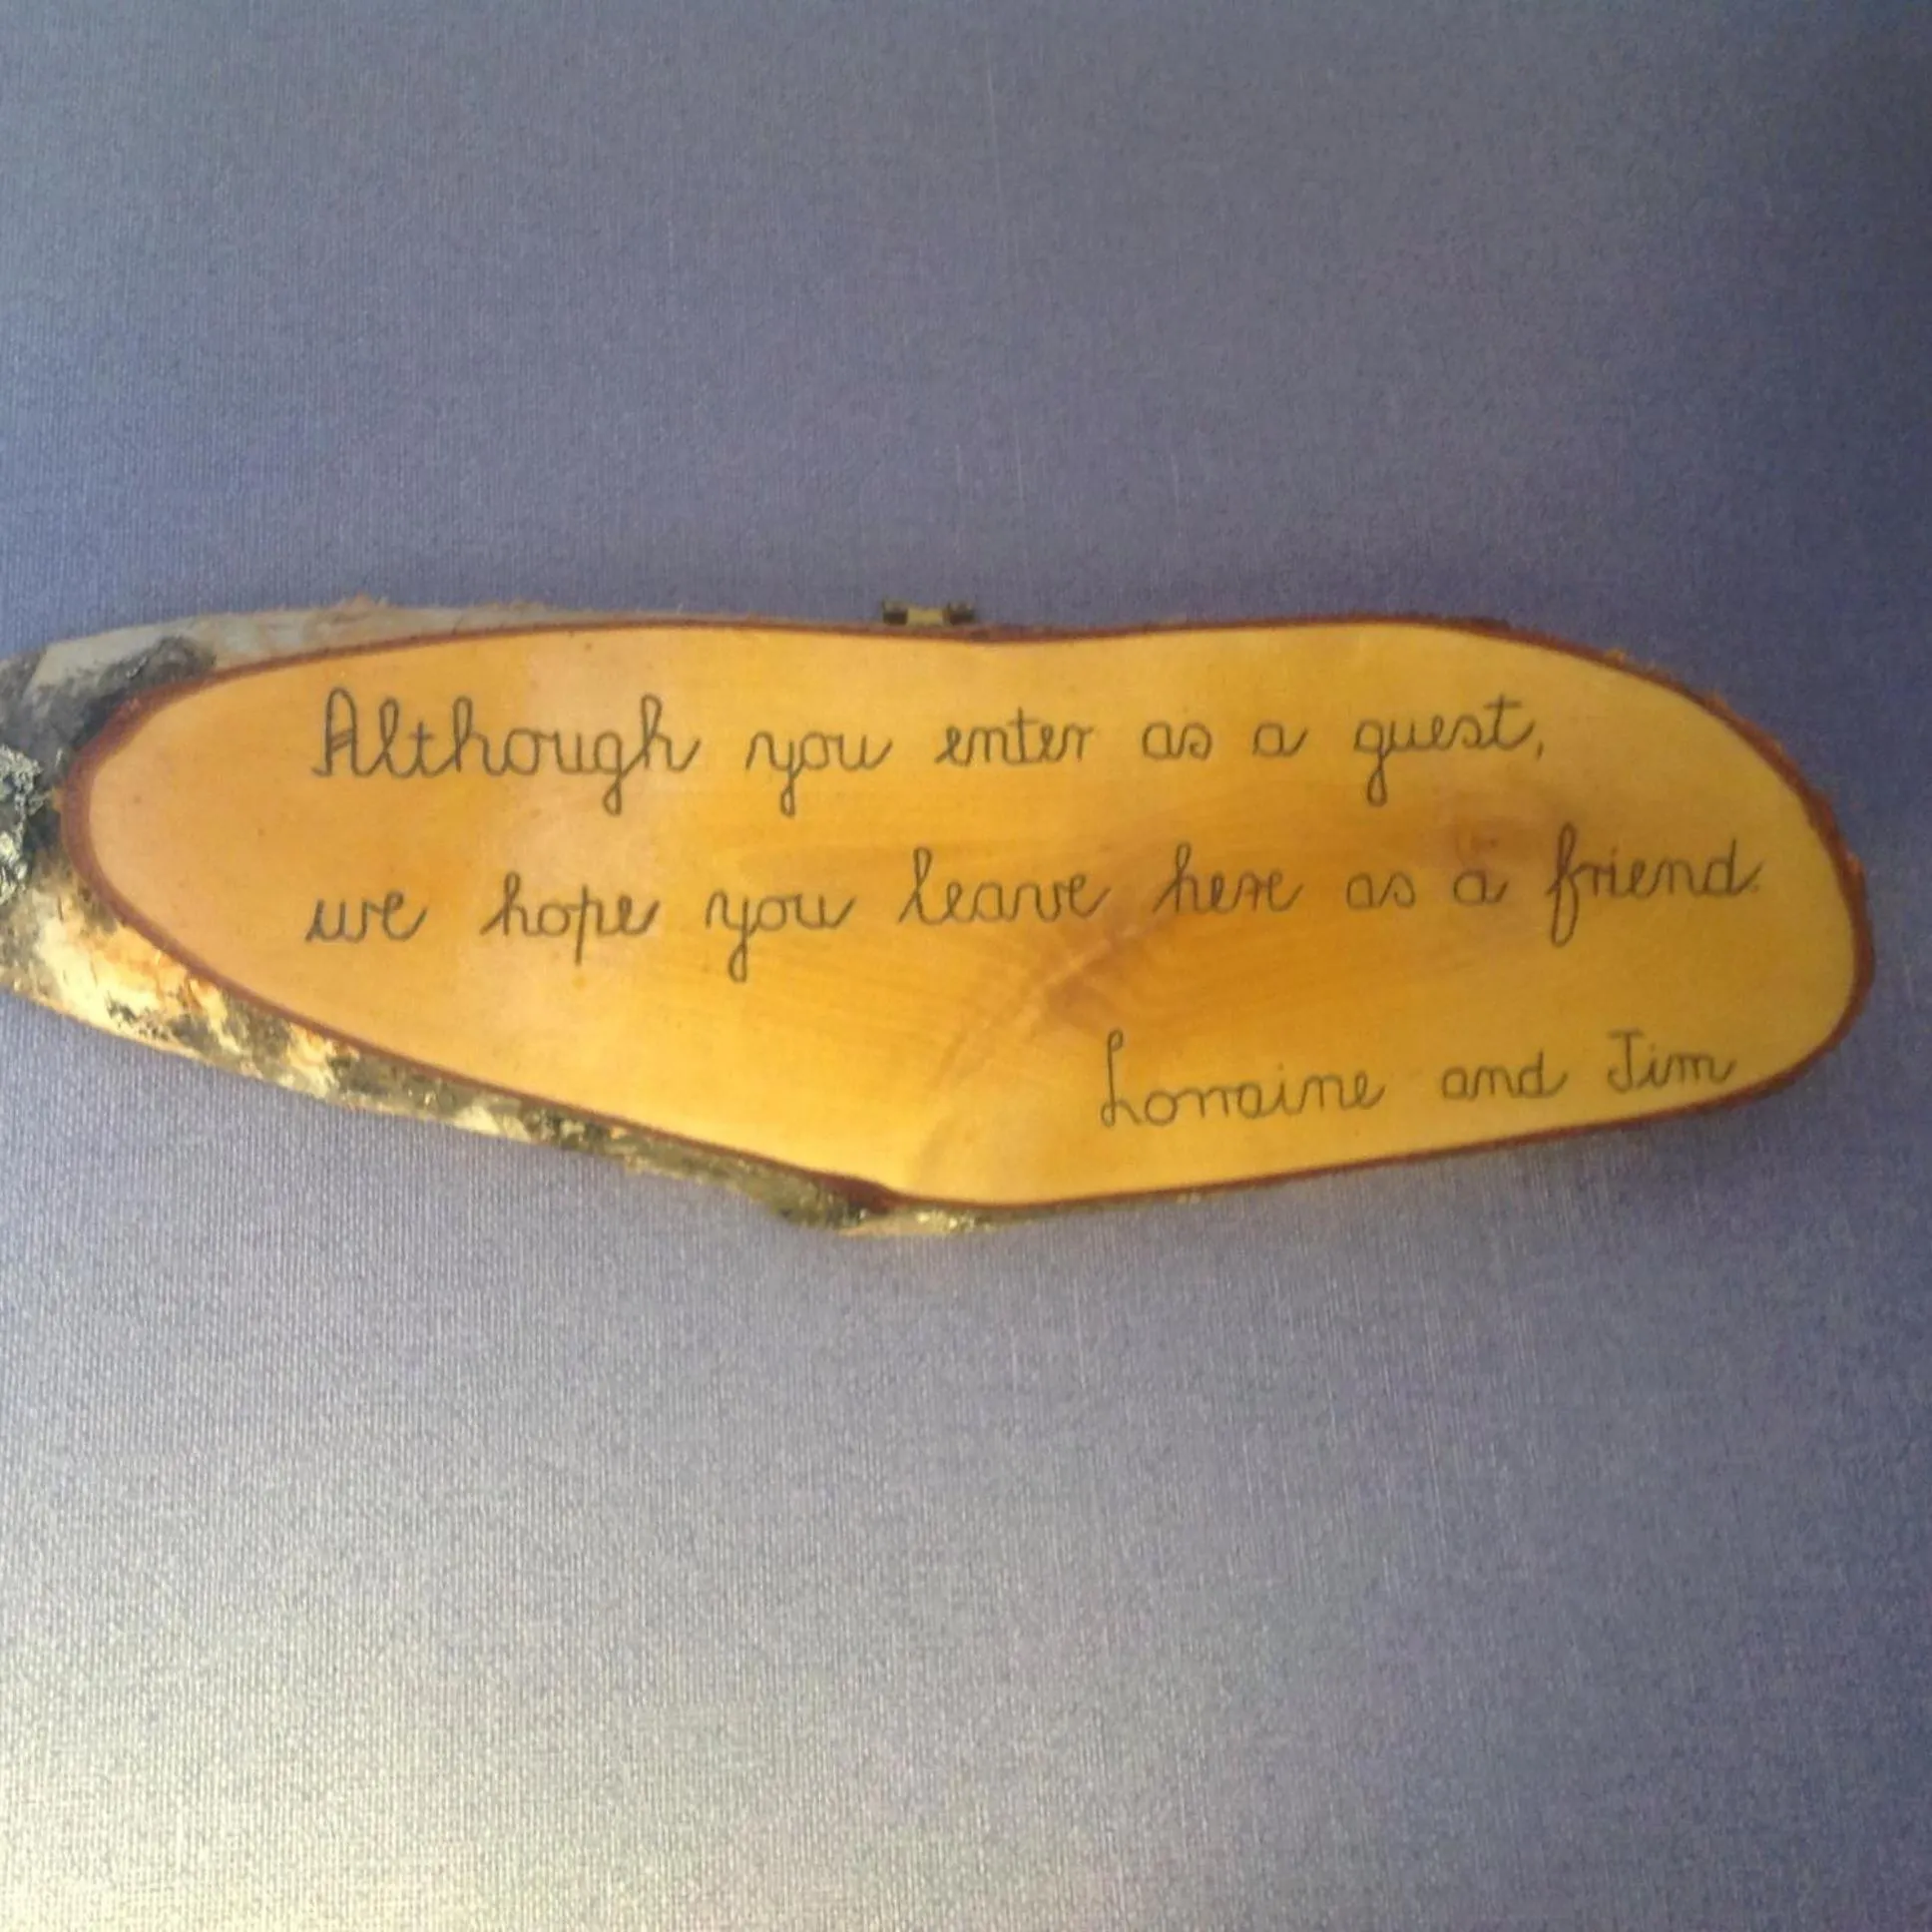 Although you enter as a guest,
we hope you leave here as a friend.
Lorraine and Jim